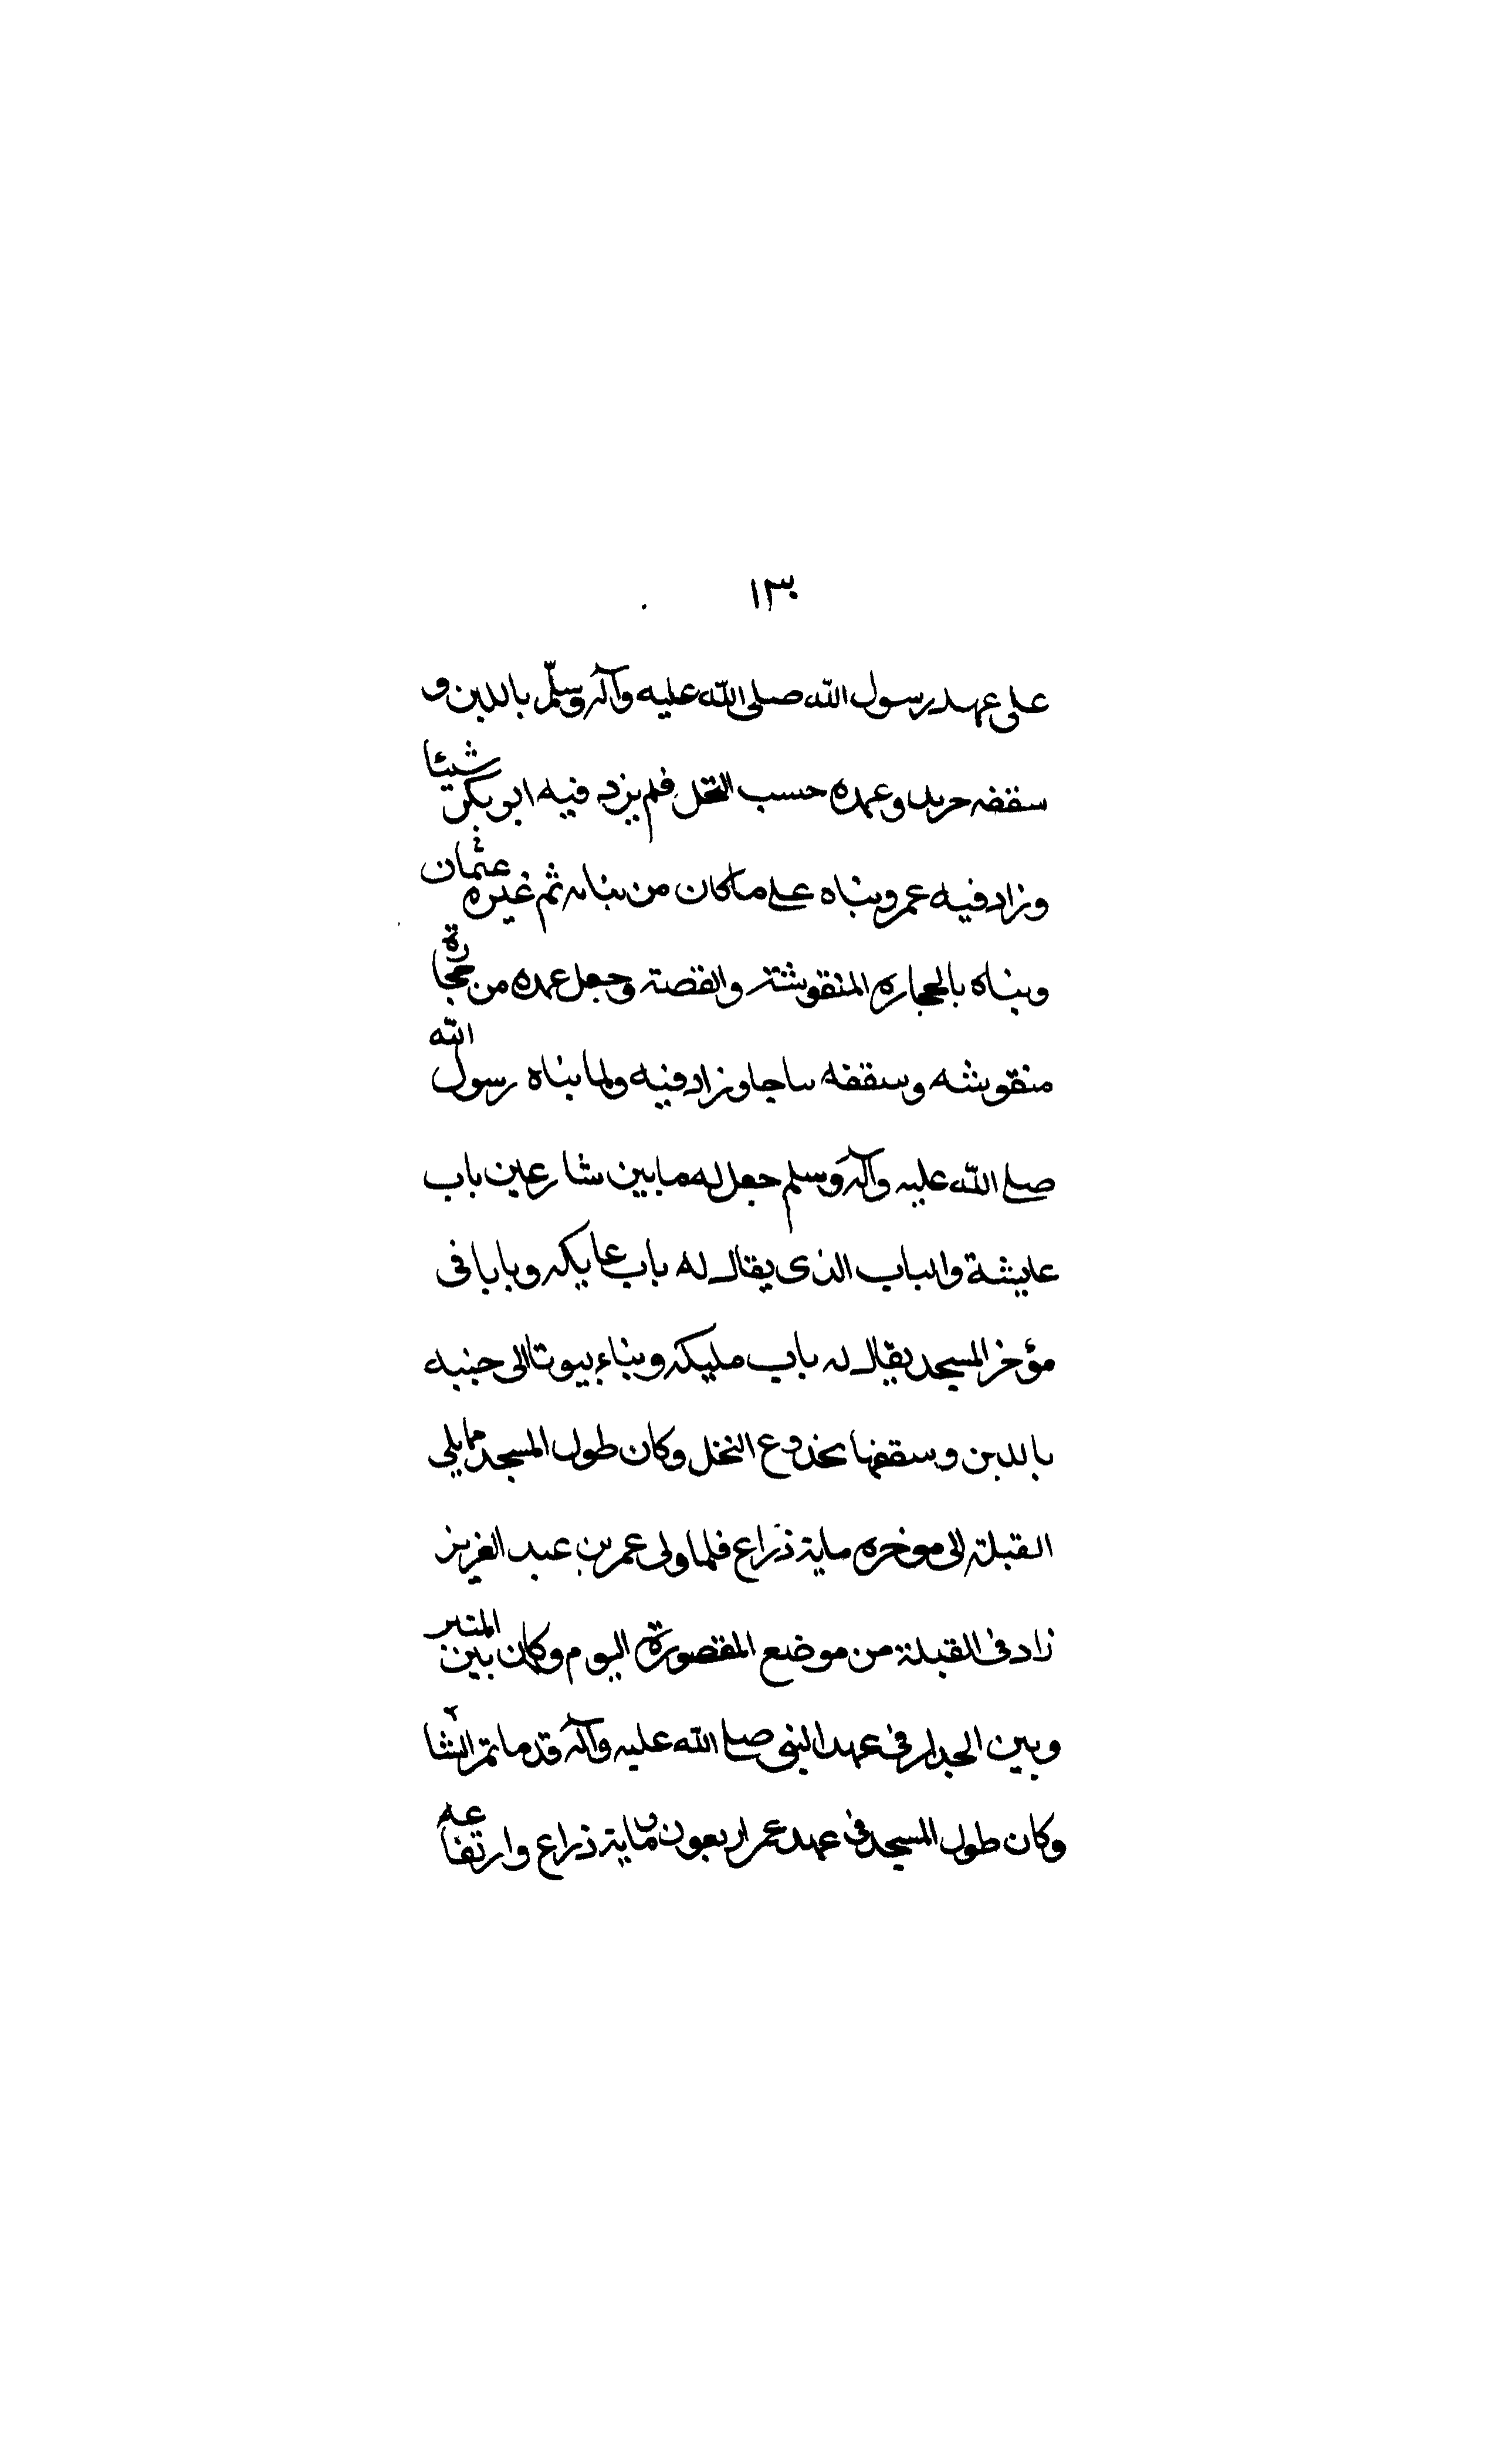 ١٣٠
على عهد رسول الله صلى الله عليه وآله وسلّم باللبن و
سقفه جريد وعمده خسب النخل فلم يزد فيه ابو بكر شيئا
وزاد فيه عمر وبناه على ما كان من بنائه ثم غيره عثمان
وبناه بالحجاره المنقوشة والقصة وجعل عمده من حجارة
منقوشه وسقفه ساجا وزاد فيه ولما بناه رسول الله
صلى الله عليه وآله وسلم جعل له ما بين شارعين باب
عايشة والباب الذى يقال له باب عايكه وبابا فى
مؤخر المسجد يقال له باب مليكه وبناء بيوتا الى جنبه
باللبن وسقفها بجذوع النخل وكان طول المسجد مما يلى
القبلة الى موخره ماية ذراع فلما ولى عمر بن عبد العزيز
زاد فى القبلة من موضع المقصورة اليوم وكان بين المنبر
وبين الجدار فى عهد النبى صلى الله عليه وآله قدما تمر الشاة
وكان طول المسجد فى عهد عمر اربعون وماية ذراع وارتفاعه